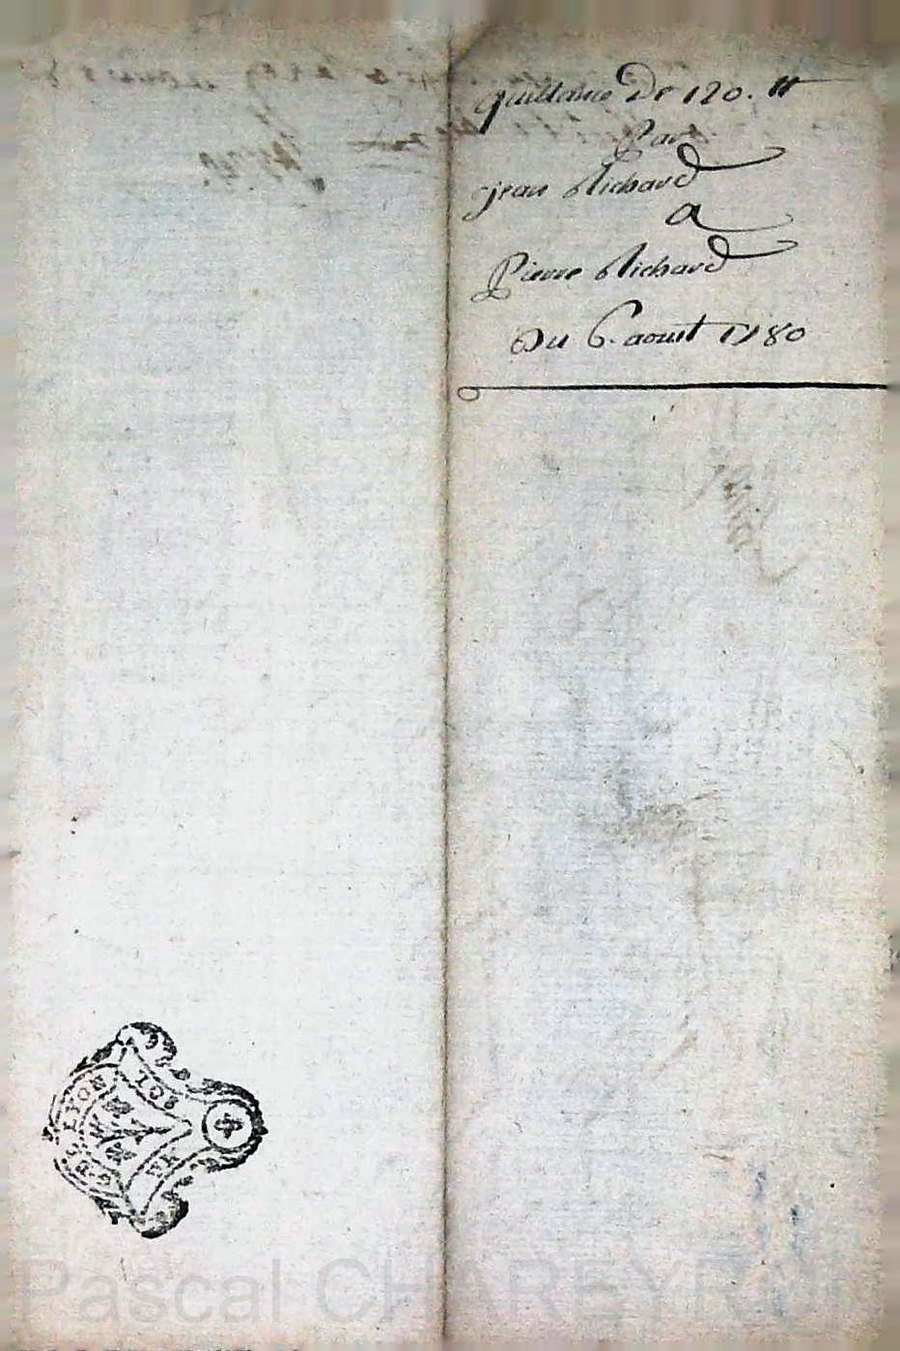 quittance De 120. tt
Par
jean Richard
a
Pierre Richard
Du 6. aoust 1780
LYON
Pascal CHAREYRON